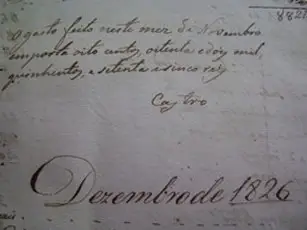 O gasto feito neste mez de Novembro
importa oito centos, oitenta e dois mil,
quinhentos, e setenta e sinco reis
Castro
Dezembro de 1826